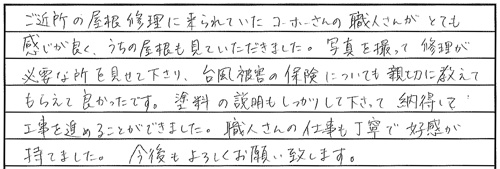 ご近所の屋根修理に来られていたコーホーさんの職人さんがとても
感じが良く、うちの屋根も見ていただきました。写真を撮って修理が
必要な所を見せて下さり、台風被害の保険についても親切に教えて
もらえて良かったです。塗料の説明もしっかりして下さって納得して
工事を進めることができました。職人さんの仕事も丁寧で好感が
持てました。今後もよろしくお願い致します。